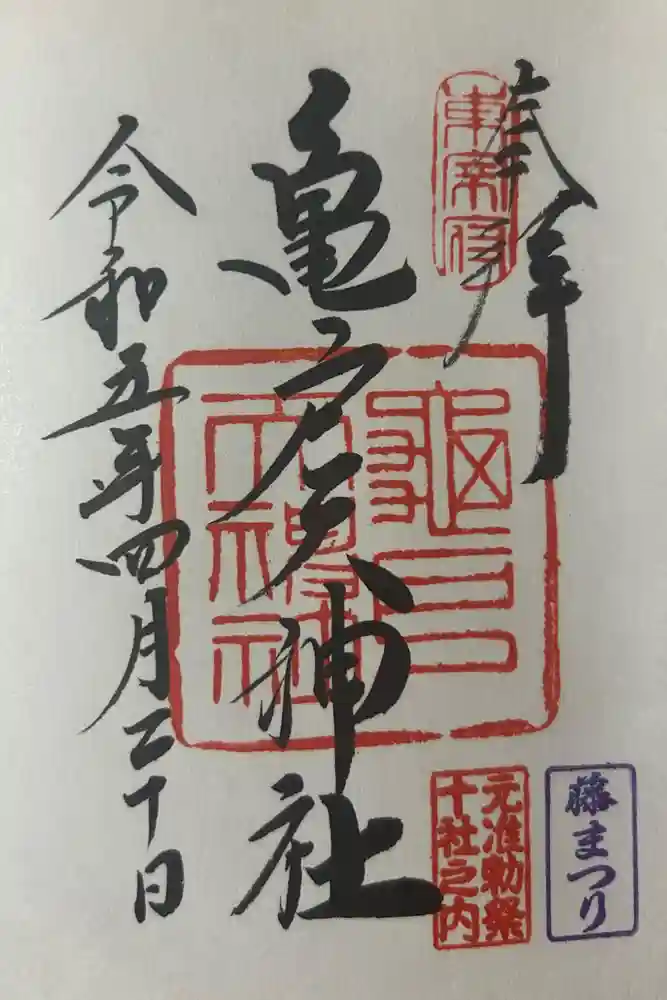 奉拝
東宰府
亀戸天神社
亀戸
天神社
令和五年四月二十日
藤まつり
元准勅祭
十社之内